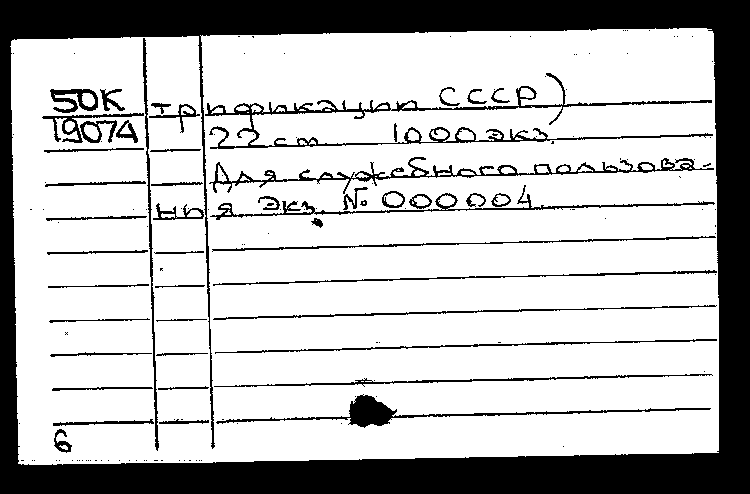 50К трификации СССР)
19074 22 cm 1000 экз.
Для служебного пользова-
ния экз. №. 000004.
6